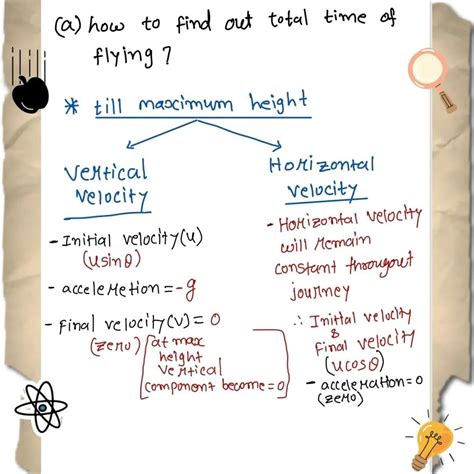 (a) how to find out total time of
flying ?
* till maximum height
Vertical
Velocity
- Initial velocity(u)
(usinθ)
- acceleretion = -g
- Final velocity(v) = 0
(zero)
[at max
height
vertical
component become = 0]
Horizontal
velocity
- Horizontal velocity
will remain
constant througout
journey
∴ Initial velocity
&
Final velocity
(ucosθ)
- acceleration = 0
(zero)